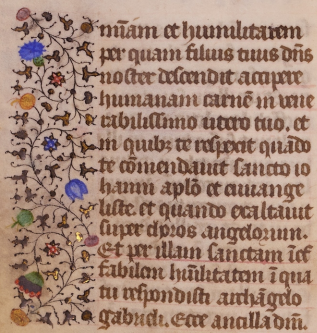 mīam et humilitatem
per quam filius tuus dn̄s
noster descendit accipere
humanam carnē in vene
rabilissimo utero tuo, et
in quibꝫ te respexit quādo
te cōmendavit sancto io
hanni aplō et euuange
liste. et quando exaltauit
super choros angelorum.
Et per illam sanctam īef
fabilem hūilitatem ī qua
tu respondisti archāgelo
gabrieli. Ecce ancilla dn̄i.